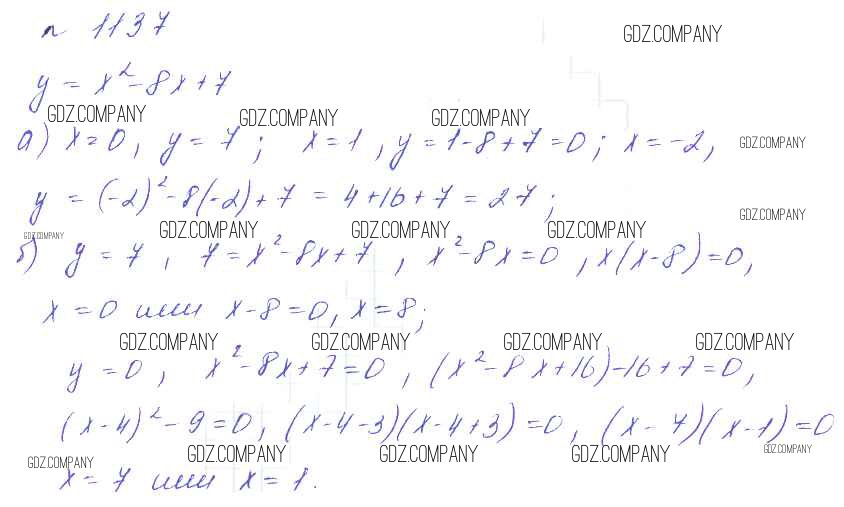 № 1137
GDZ.COMPANY
y = x² - 8x + 7
GDZ.COMPANY GDZ.COMPANY GDZ.COMPANY
а) x = 0, y = 7; x = 1, y = 1 - 8 + 7 = 0; x = -2,
GDZ.COMPANY
y = (-2)² - 8(-2) + 7 = 4 + 16 + 7 = 27;
GDZ.COMPANY
GDZ.COMPANY GDZ.COMPANY GDZ.COMPANY GDZ.COMPANY
б) y = 7, 7 = x² - 8x + 7, x² - 8x = 0, x(x - 8) = 0,
x = 0 или x - 8 = 0, x = 8;
GDZ.COMPANY GDZ.COMPANY GDZ.COMPANY GDZ.COMPANY
y = 0, x² - 8x + 7 = 0, (x² - 8x + 16) - 16 + 7 = 0,
(x - 4)² - 9 = 0, (x - 4 - 3)(x - 4 + 3) = 0, (x - 7)(x - 1) = 0
GDZ.COMPANY GDZ.COMPANY GDZ.COMPANY GDZ.COMPANY GDZ.COMPANY
x = 7 или x = 1.